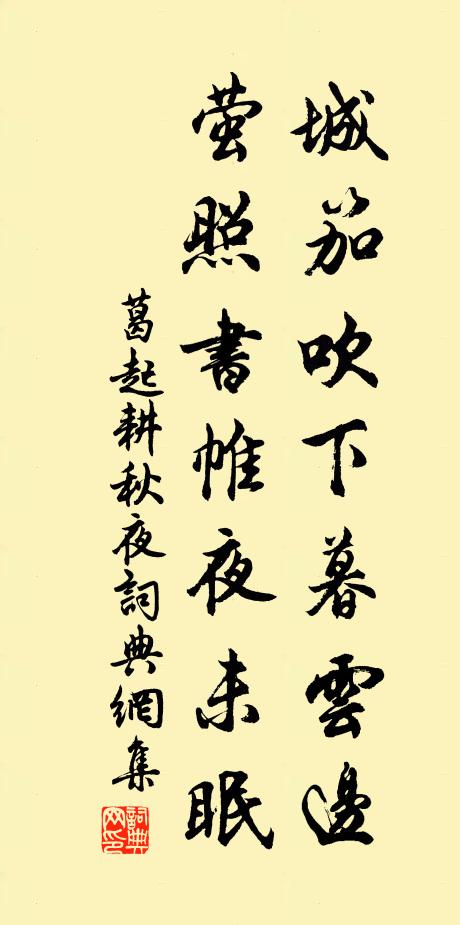 城笳吹下暮雲邊
萤照書帷夜未眠
葛起耕秋夜詞典網集
詞典网印